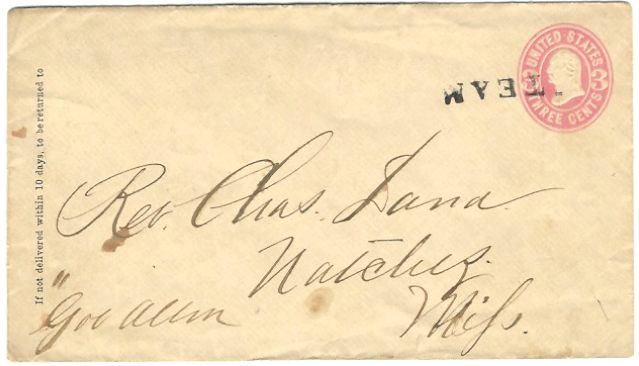 UNITED STATES
3 3
THREE CENTS
TEAM
If not delivered within 10 days, to be returned to
Rev. Chas. Dana
Natchez.
Miss.
"Gov Allen